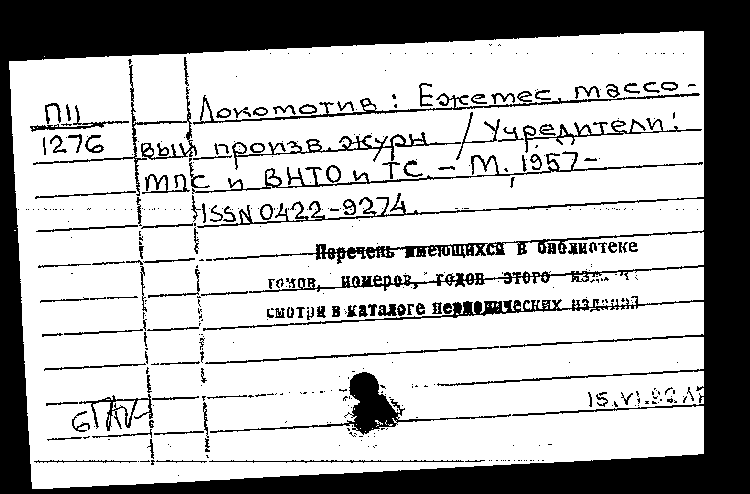 П11
1276
Локомотив: Ежемес. массо-
вый произв. журн. / Учредители:
МПС и ВНТО и ТС. - М., 1957-
ISSN 0422-9274.
Перечень имеющихся в библиотеке
томов, номеров, годов этого
смотри в каталоге периодических изданий
15.VI.92